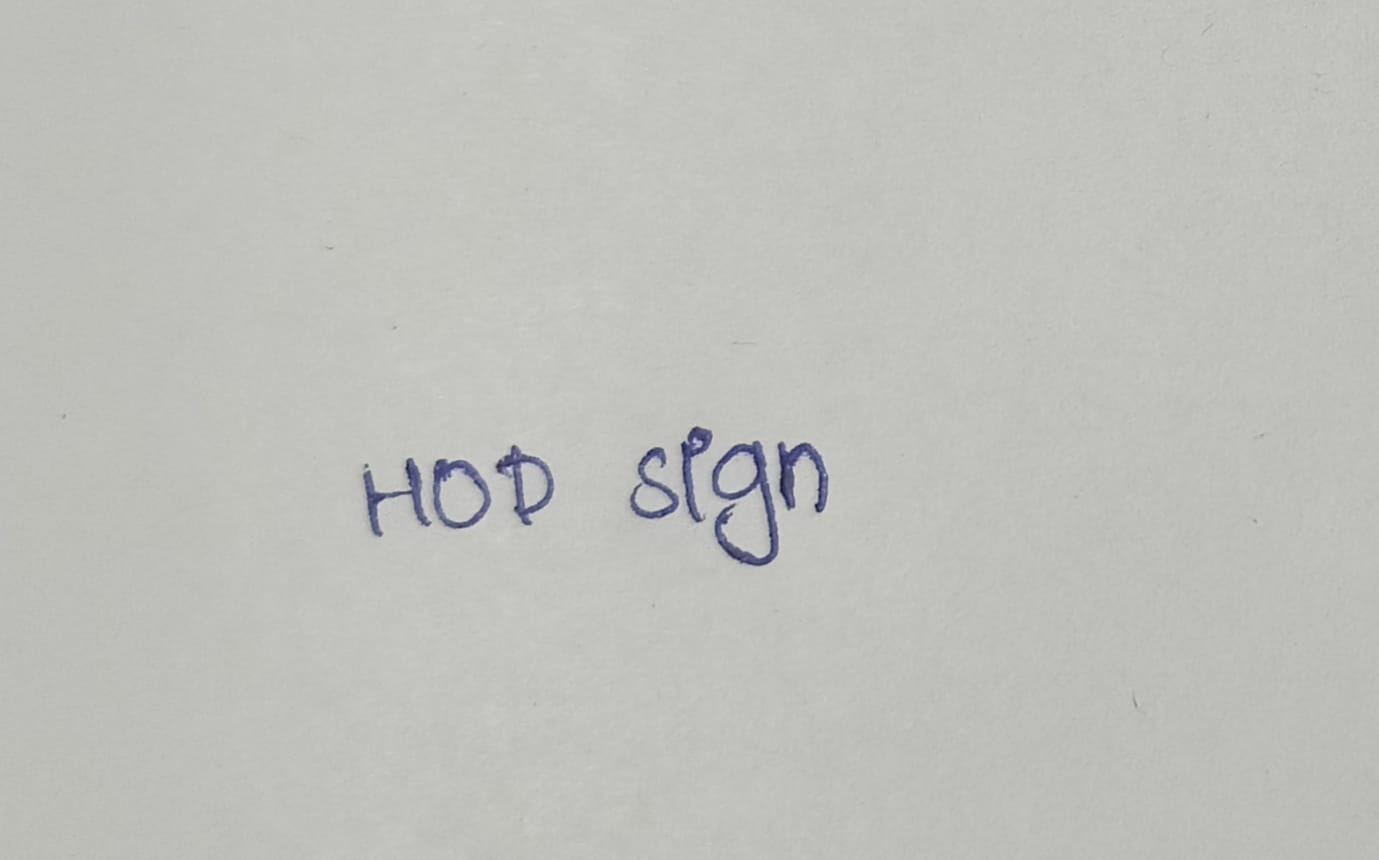 HOD sign